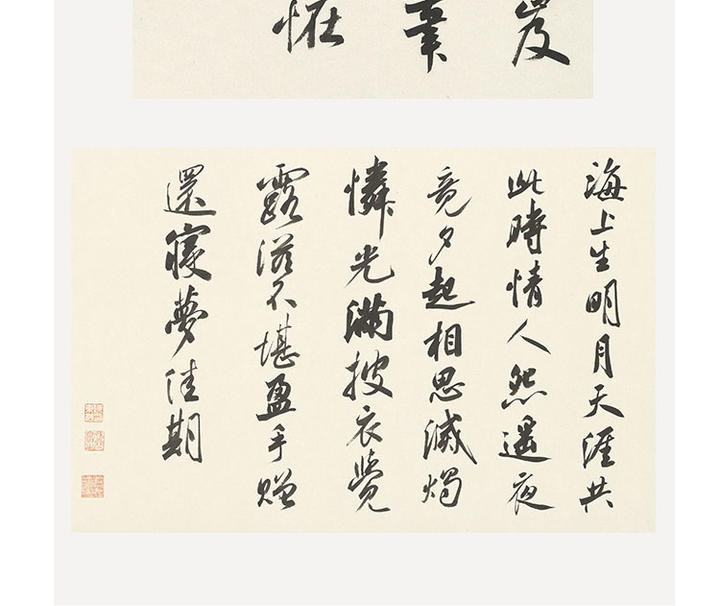 海上生明月天涯共
此時情人怨遥夜
竟夕起相思滅燭
憐光滿披衣覺
露滋不堪盈手贈
還寢夢佳期